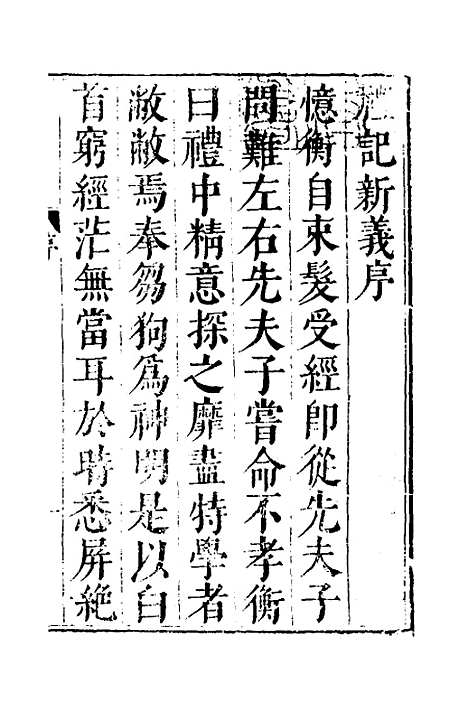 禮記新義序
憶衡自束髮受經即從先夫子
問難左右先夫子嘗命不孝衡
曰禮中精意探之靡盡特學者
敝敝焉奉芻狗爲神明是以白
首窮經茫無當耳於時悉屏絶
序